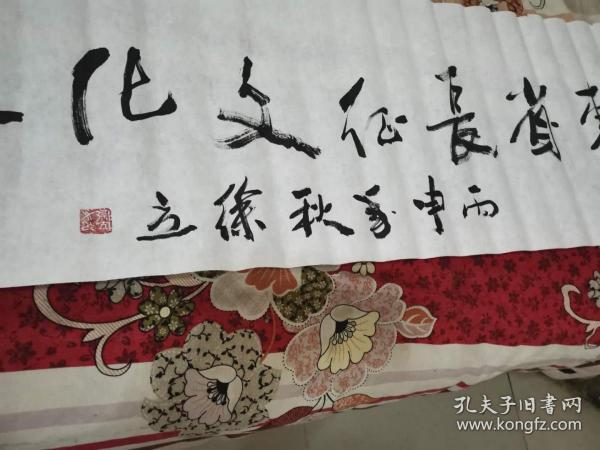 省長征文化
丙申年秋徐立
孔夫子旧书网
www.kongfz.com